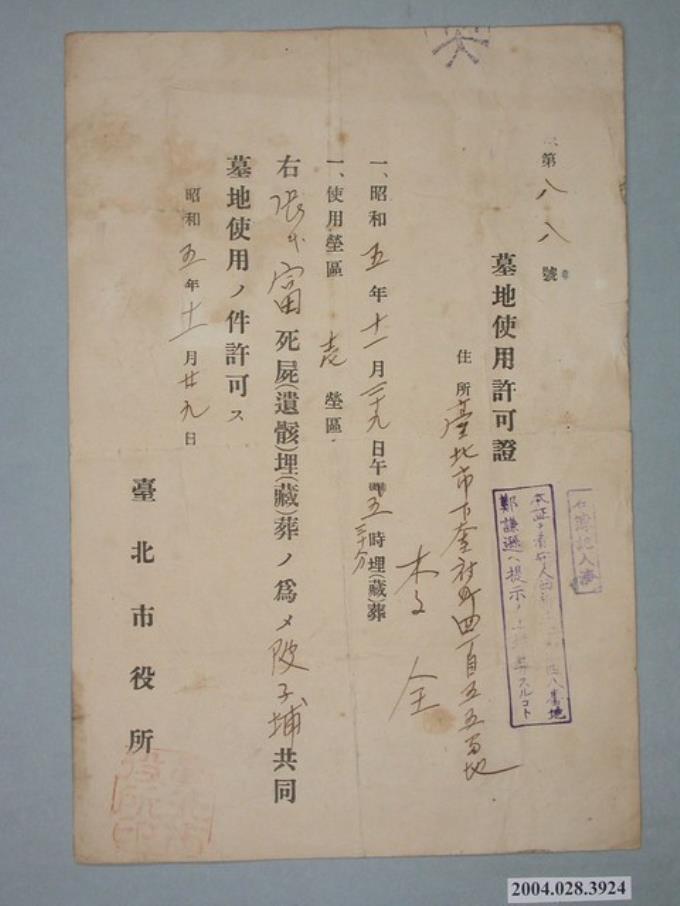 第八八號
墓地使用許可證
住所 臺北市下奎府町四丁目五五番地
全
一、昭和五年十一月二十九日午後五時三十分埋(藏)葬
一、使用塋區 壱 塋區
右 張 富 死屍(遺骸)埋(藏)葬ノ為メ陂子埔共同
墓地使用ノ件許可ス
昭和五年十一月廿九日
臺北市役所
台簿記入濟
本証ヲ 墓地
鄭謙遜ヘ提示ノ上 スルコト
2004.028.3924